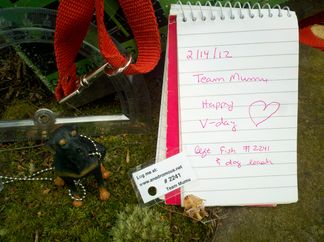 2/14/12
Team Mumu
Happy
V-day
fish # 2241
& dog leash
Log me at:
www.anadromous.net
# 2241
Team Mumu